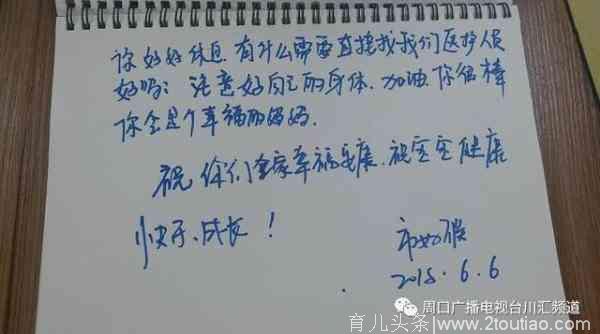 你好好休息,有什么需要直接找我们医护人员
好吗?注意好自己的身体.加油.你很棒
你会是个幸福的妈妈.
祝你们全家幸福安康.祝宝宝健康
快乐.成长!
市妇保
2018.6.6
周口广播电视台川汇频道
育儿头条/www.2toutiao.com